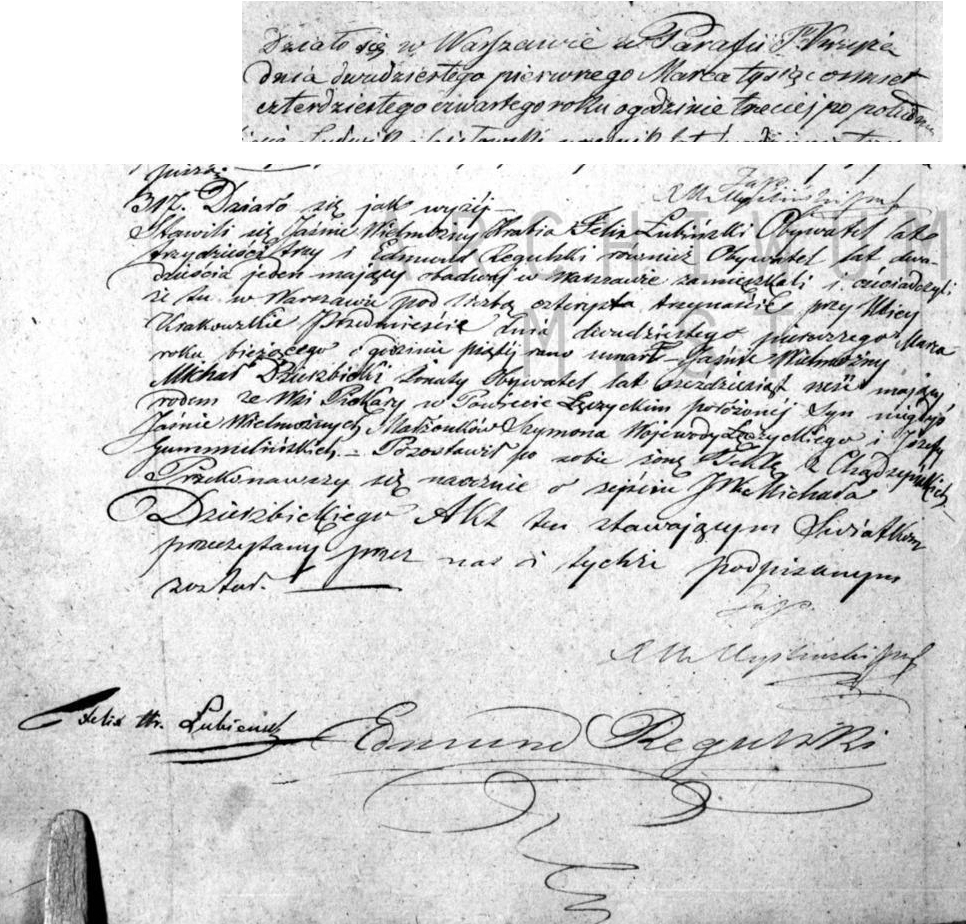 Działo się w Warszawie w Parafii Sgo Krzyża
dnia dwudziestego pierwszego Marca tysiąc osmset
czterdziestego czwartego roku o godzinie trzeciej po południu
317. Działo się jak wyżej
Stawili się Jaśnie Wielmożny Hrabia Felix Łubiński Obywatel lat
trzydzieści trzy i Edmund Regulski rownież Obywatel lat dwa-
dzieścia jeden mający obadwaj w Warszawie zamieszkali i oświadczyli
że tu w Warszawie pod liczbą czterysta trzynaście przy Ulicy
Krakowskie Przedmieście dnia dwudziestego pierwszego Marca
roku bieżącego o godzinie piątéj rano umarł Jaśnie Wielmożny
Michał Dzierzbicki żonaty Obywatel lat mający
rodem ze Wsi Piekary w Powiecie Łęczyckim położonej Syn niegdyś
Jaśnie Wielmożnych Małżonków Szymona Wojewody Łęczyckiego i Józefy
Pozostawił po sobie żonę Teklę z
Przekonawszy się naocznie o zejściu JWo Michała
Dzierzbickiego Akt ten stawającym Świadkom
przeczytany przez nas i tychże podpisanym
został.
X M Myśliński
Felix Hr. Łubieński
Edmund Regulski
ARCHIWUM
M ST